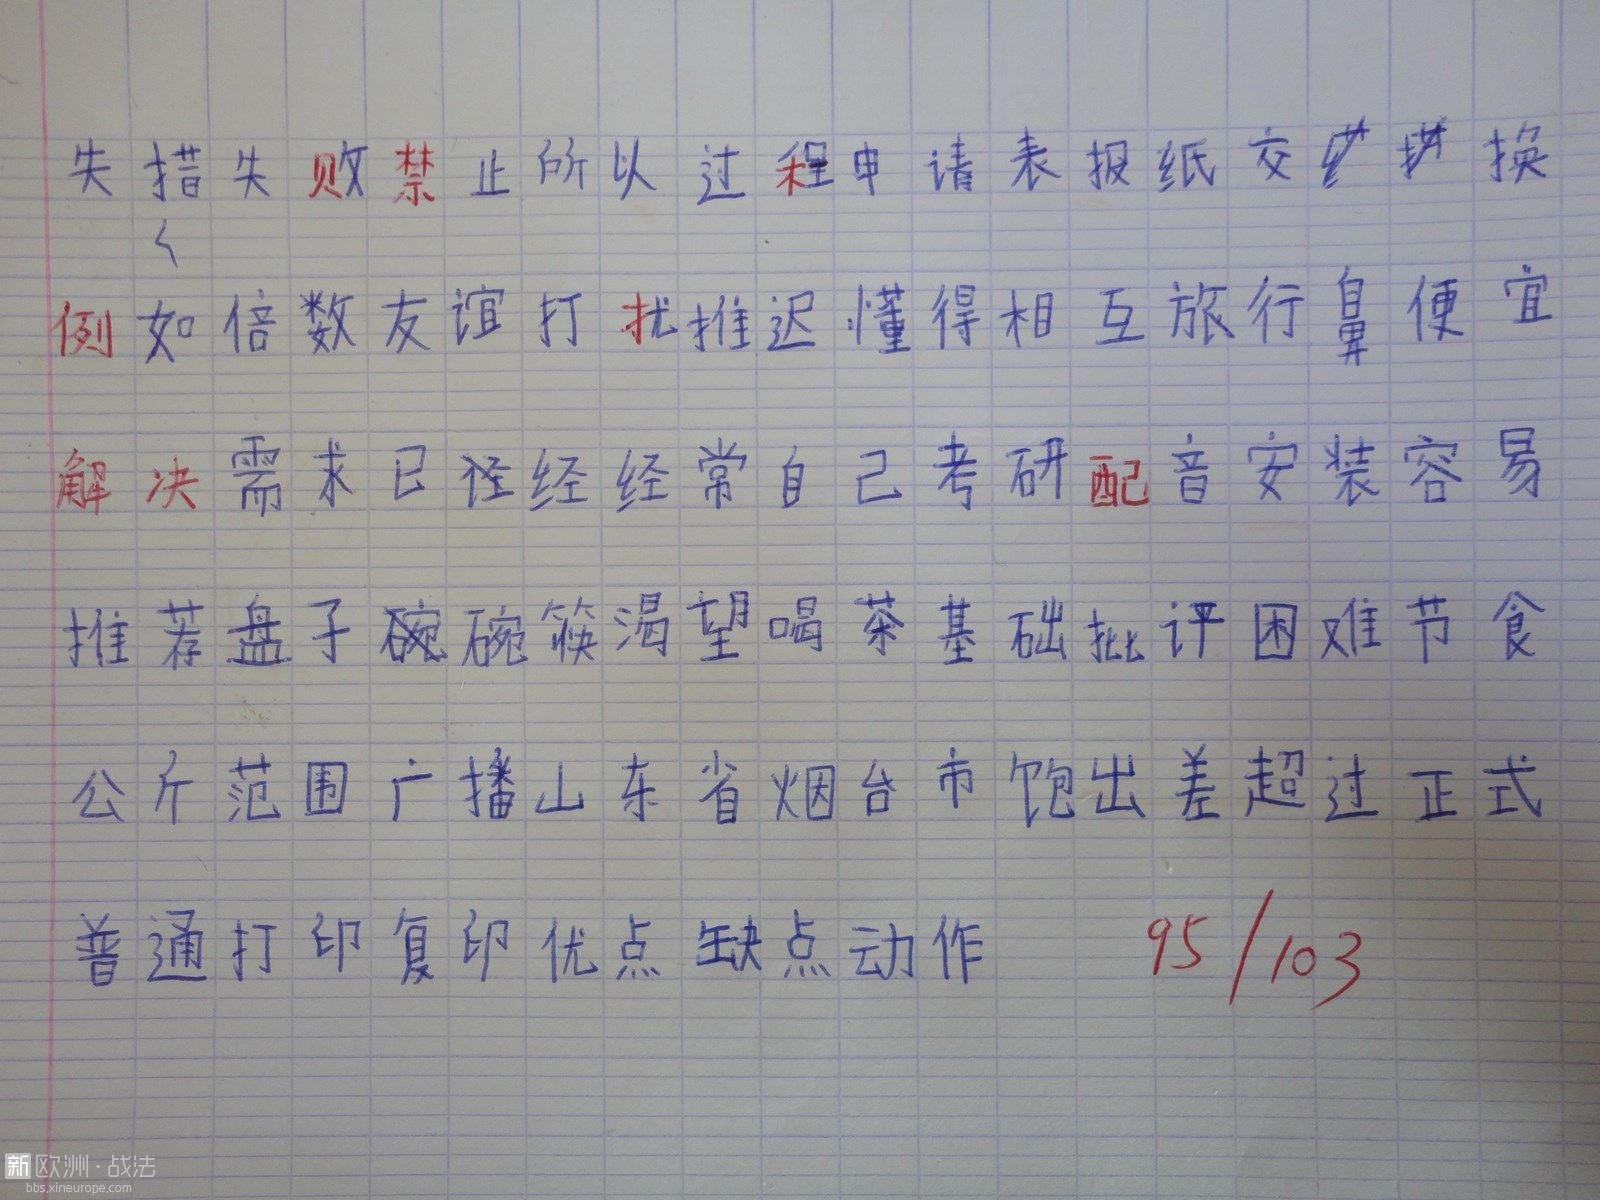 失措失败禁止所以过程申请表报纸交换
例如倍数友谊打扰推迟懂得相互旅行鼻便宜
解决需求已径经经常自己考研配音安装容易
推荐盘子碗碗筷渴望喝茶基础批评困难节食
公斤范围广播山东省烟台市饱出差超过正式
普通打印复印优点缺点动作 95/103
新欧洲·战法
bbs.xineurope.com